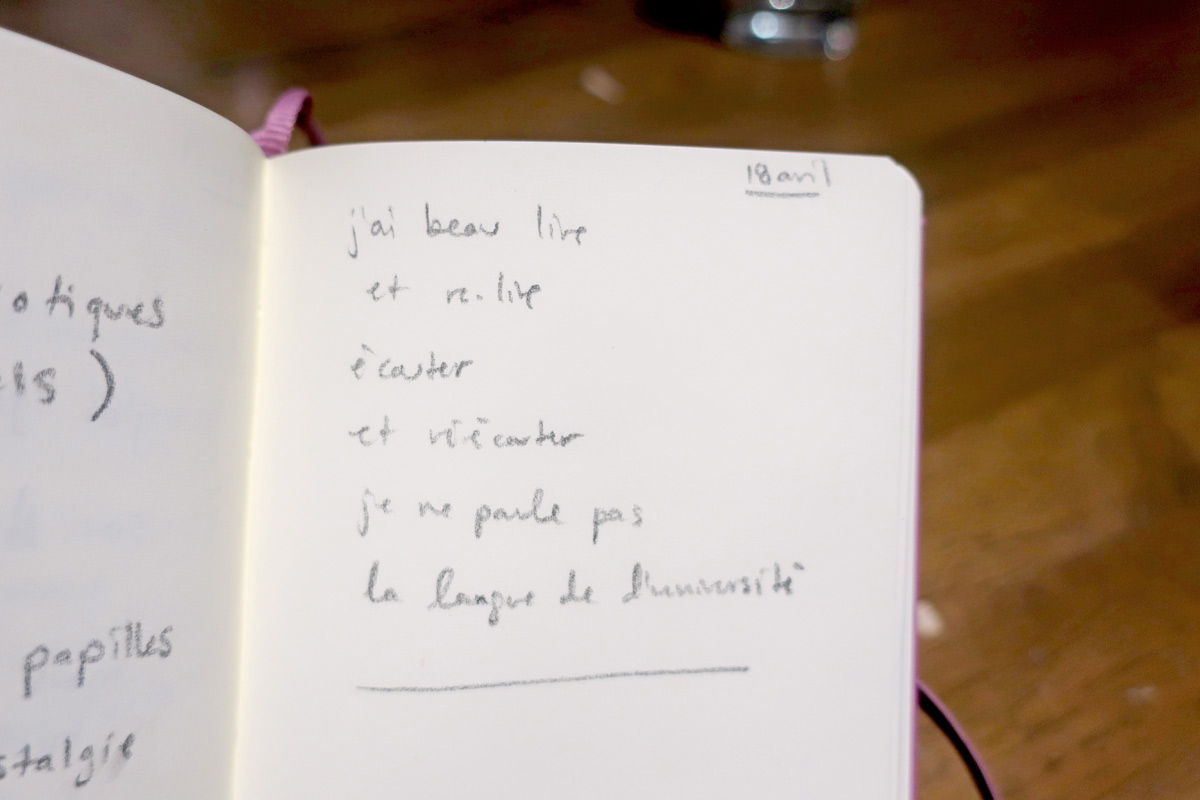 otiques
els )
papilles
stalgie
18 avril
j'ai beau lire
et re-lire
écouter
et réécouter
je ne parle pas
la langue de l'université